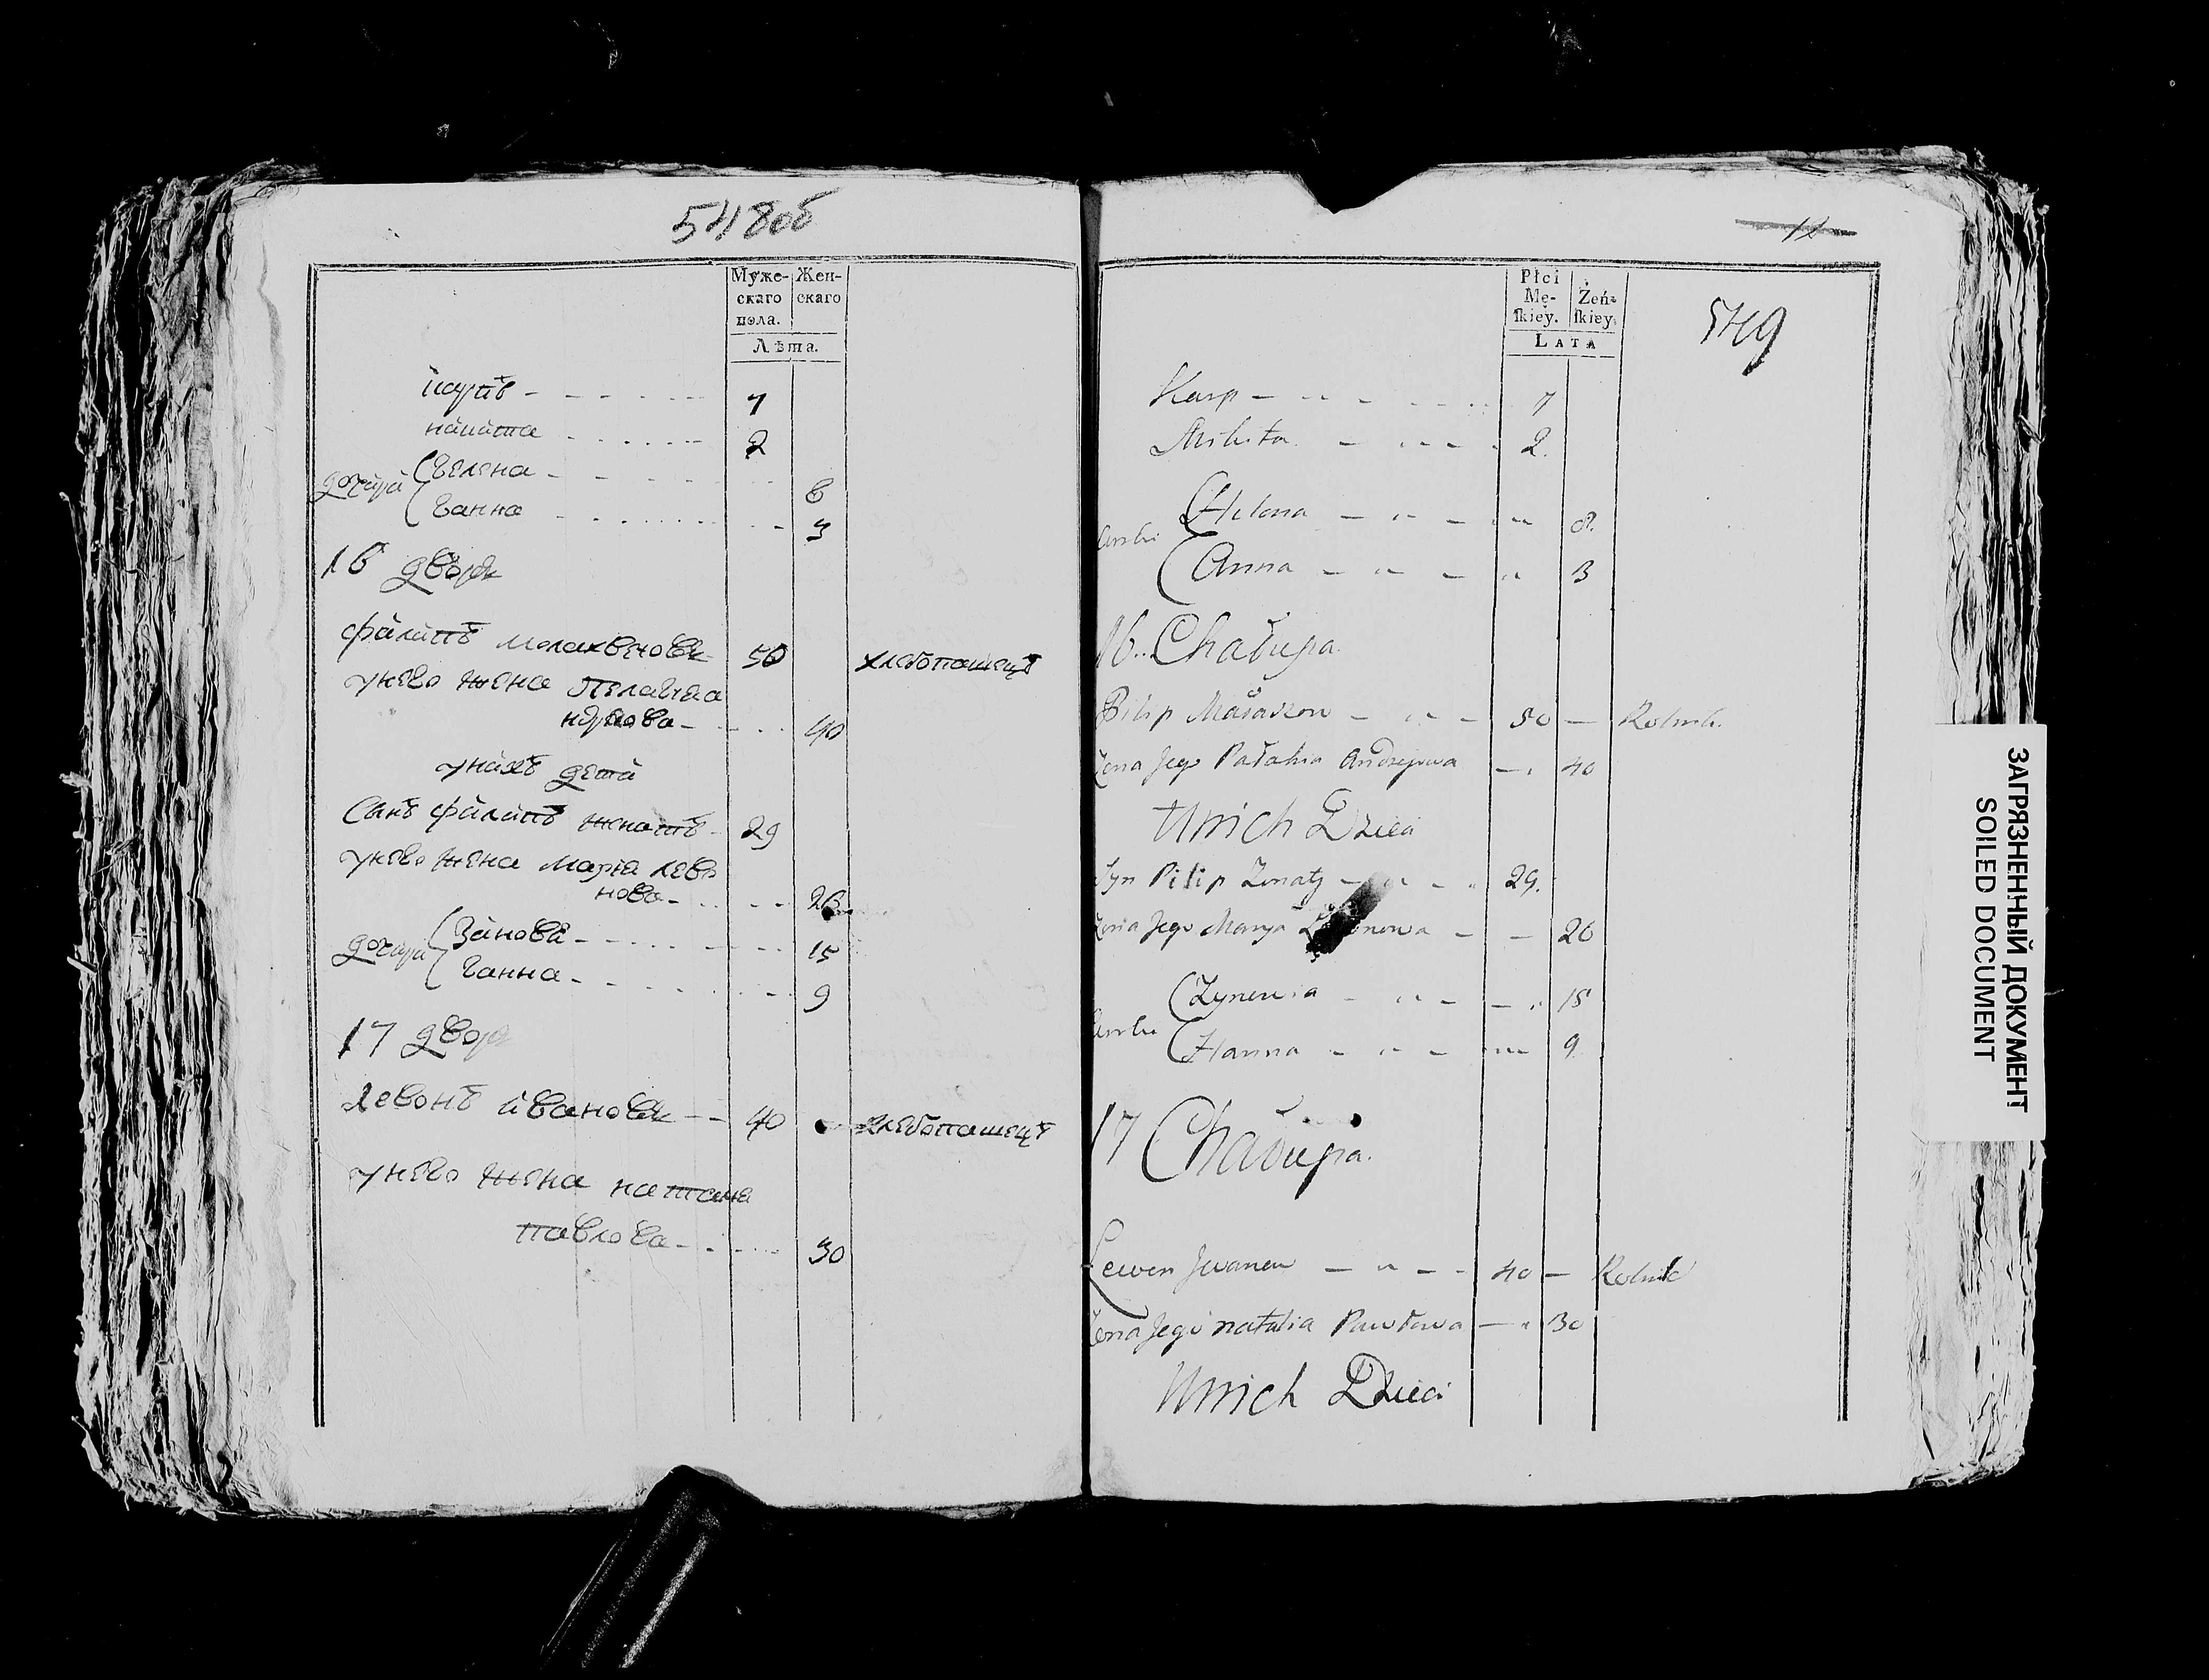 548об
Муже-
скаго
пола.
Жен-
скаго
Лѣта.
7
никита 2
дочери Гелена 8
Ганна 3
16 дворъ
филипъ 50 хлебопашецъ
унево жена Пелагея
40
униxъ дети
Сынъ филипъ женатъ 29
унево жена Мария лево
нова 26
дочери Зинове 15
Ганна 9
17 двор
левонъ ивановъ 40 хлебопашецъ
унево жена
павлова 30
12
549
Płci
Mę-
skiey.
Żeń-
skiey.
LATA
Karp 7
Mikita 2.
Helena 8.
Anna 3
16. Chałupa.
Pilip 50 Rolnik.
Żona Jego Pałahia Andrejowa 40
Unich Dzieci
Syn Pilip Żonaty 29.
Żona Jego Marya 26
Zynowia 15
Hanna 9
17 Chałupa.
Lewon Iwanow 40 Rolnik
Żona Jego natalia Pawłowa 30
Unich Dzieci
ЗАГРЯЗНЕННЫЙ ДОКУМЕНТ
SOILED DOCUMENT